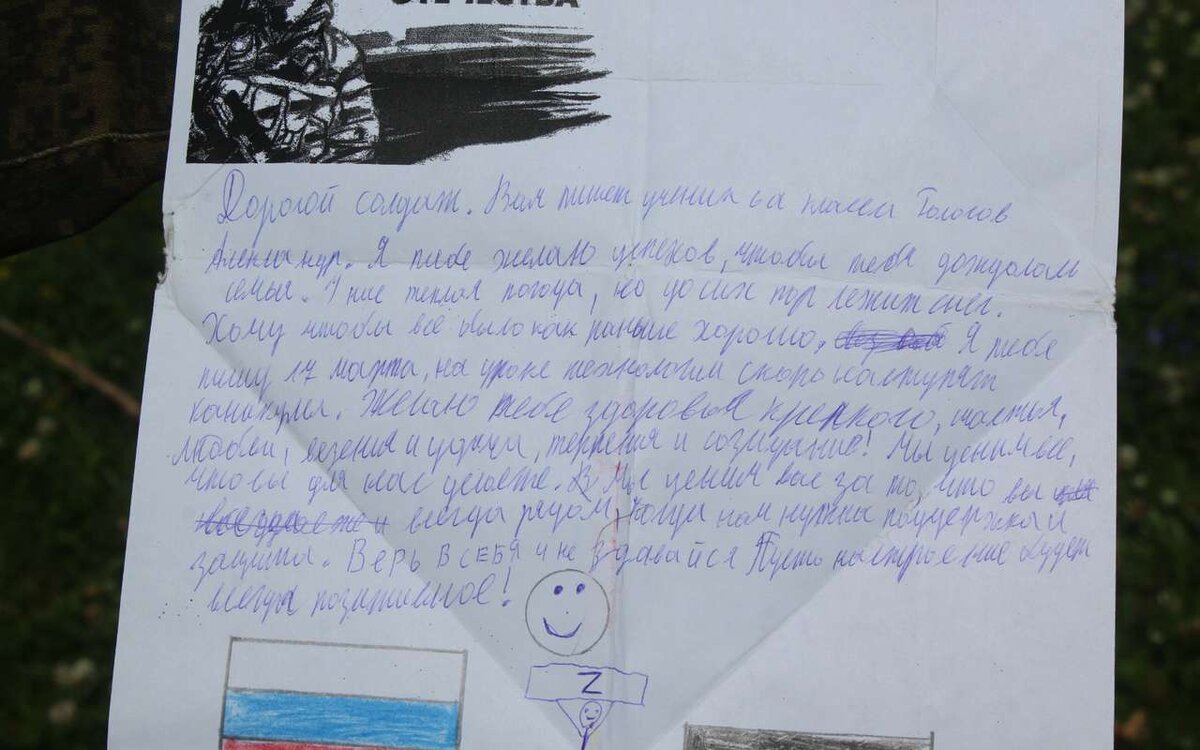 ОТЕЧЕСТВА
Дорогой солдат. Вам пишет ученик 6а класса Гологов
Александр. Я тебе желаю успехов, чтобы тебя дождолась
семья. У нас теплая погода, но до сих пор лежит снег.
Хочу чтобы всё было как раньше хорошо. Я тебе
пишу 17 марта, на уроке технологии скоро наступят
каникулы. Желаю тебе здоровья крепкого, счастья,
любви, везения и удачи, терпения и созидание! Мы ценим всё,
что вы для нас делаете. Мы ценим вас за то, что вы
всегда рядом, когда нам нужна поддержка и
защита. Верь в себя и не здавайся Пусть настроение будет
всегда позитивное!
Z